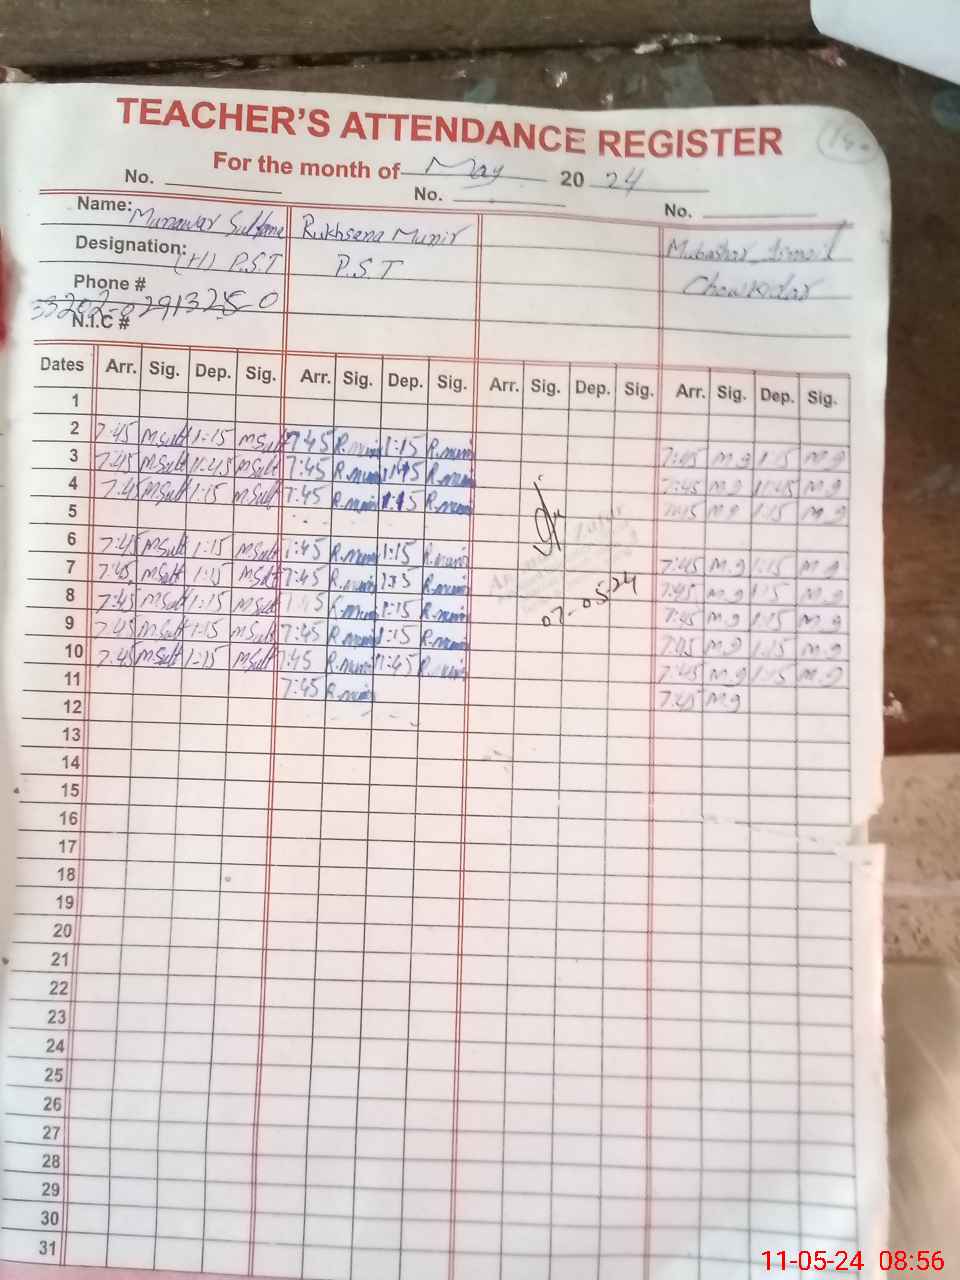 TEACHER'S ATTENDANCE REGISTER
For the month of May 2024
No. No. No.
Name: Munawar Sultana Rukhsana Munir Mubashar Ismail
Designation: (H) P.S.T P.S.T Chowkidar
Phone #
N.I.C #
Dates Arr. Sig. Dep. Sig. Arr. Sig. Dep. Sig. Arr. Sig. Dep. Sig. Arr. Sig. Dep. Sig.
1
2 7:45 M.Sult 1:15 M.Sult 7:45 R.munir 1:15 R.munir 7:45 m g 1:15 m g
3 7:45 M.Sult 11:45 M.Sult 7:45 R.munir 11:45 R.munir 7:45 m g 11:45 m g
4 7:45 M.Sult 1:15 M.Sult 7:45 R.munir 1:15 R.munir 7:45 m g 1:15 m g
5
6 7:45 M.Sult 1:15 M.Sult 7:45 R.munir 1:15 R.munir 7:45 m g 1:15 m g
7 7:45 M.Sult 1:15 M.Sult 7:45 R.munir 1:15 R.munir 7:45 m g 1:15 m g
07-05-24
8 7:45 M.Sult 1:15 M.Sult 7:45 R.munir 1:15 R.munir 7:45 m g 1:15 m g
9 7:45 M.Sult 1:15 M.Sult 7:45 R.munir 1:15 R.munir 7:45 m g 1:15 m g
10 7:45 M.Sult 1:15 M.Sult 7:45 R.munir 11:45 R.munir 7:45 m g 11:45 m g
11 7:45 R.munir 7:45 m g
12
13
14
15
16
17
18
19
20
21
22
23
24
25
26
27
28
29
30
31
11-05-24 08:56